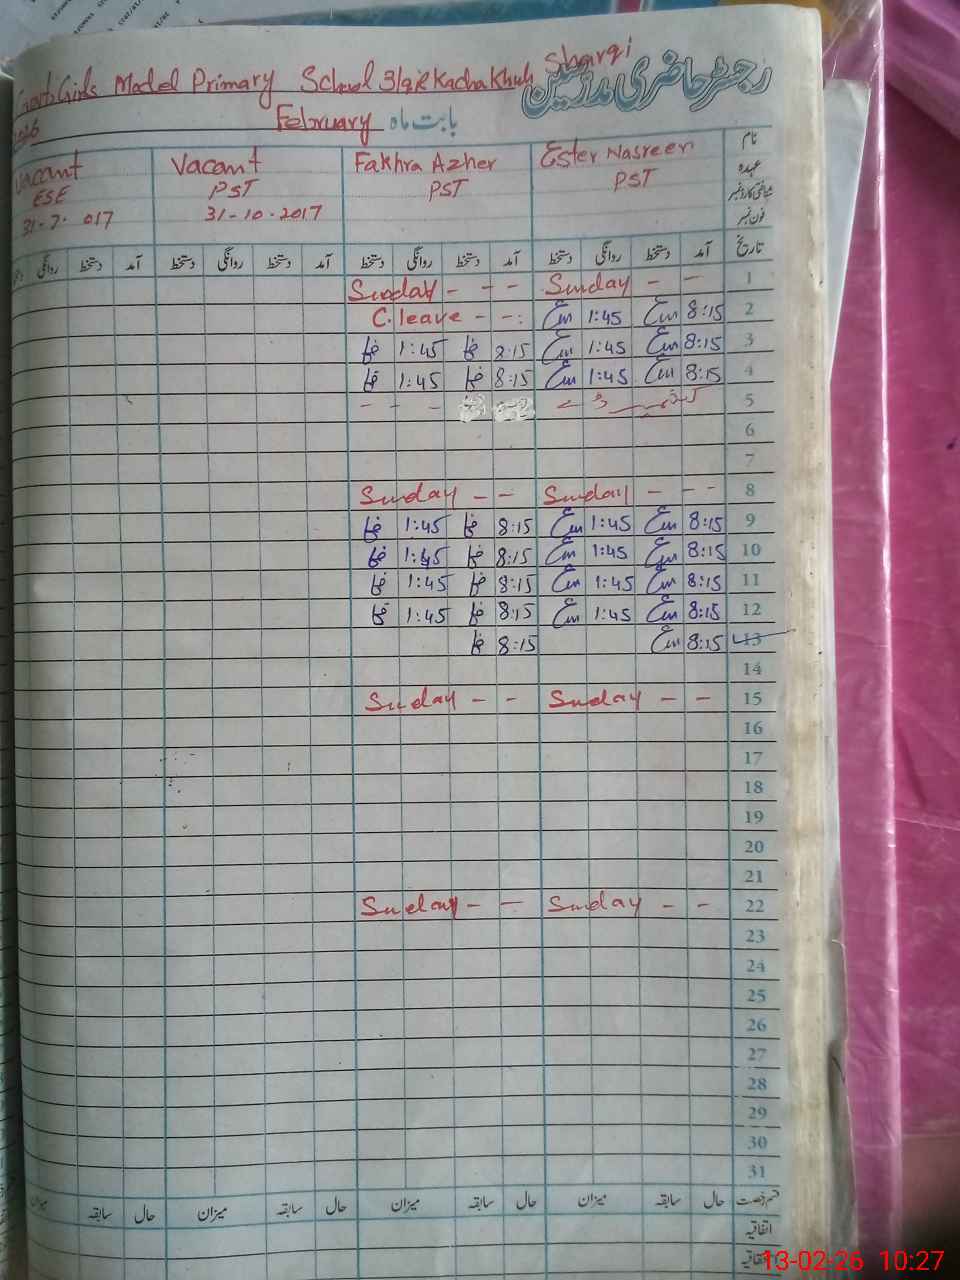 Govt. Girls Model Primary School 3/9R Kacha Khuh Sharqi
رجسٹر حاضری مدرسین
February بابت ماہ
Vacant Vacant Fakhra Azher Ester Nasreen نام
ESE PST PST PST عہدہ
31-10-2017
فون نمبر
روانگی دستخط آمد دستخط روانگی دستخط آمد دستخط روانگی دستخط آمد دستخط روانگی دستخط آمد تاریخ
Sunday - - - Sunday - - 1
C. leave - - 1:45 8:15 2
1:45 8:15 1:45 8:15 3
1:45 8:15 1:45 8:15 4
5
6
7
Sunday - - Sunday - - - 8
1:45 8:15 1:45 8:15 9
1:45 8:15 1:45 8:15 10
1:45 8:15 1:45 8:15 11
1:45 8:15 1:45 8:15 12
8:15 8:15 13
14
Sunday - - Sunday - - 15
16
17
18
19
20
21
Sunday - - Sunday - - 22
23
24
25
26
27
28
29
30
31
میزان سابقہ حال میزان سابقہ حال میزان سابقہ حال میزان سابقہ حال قسم رخصت
اتفاقیہ
13-02-26 10:27